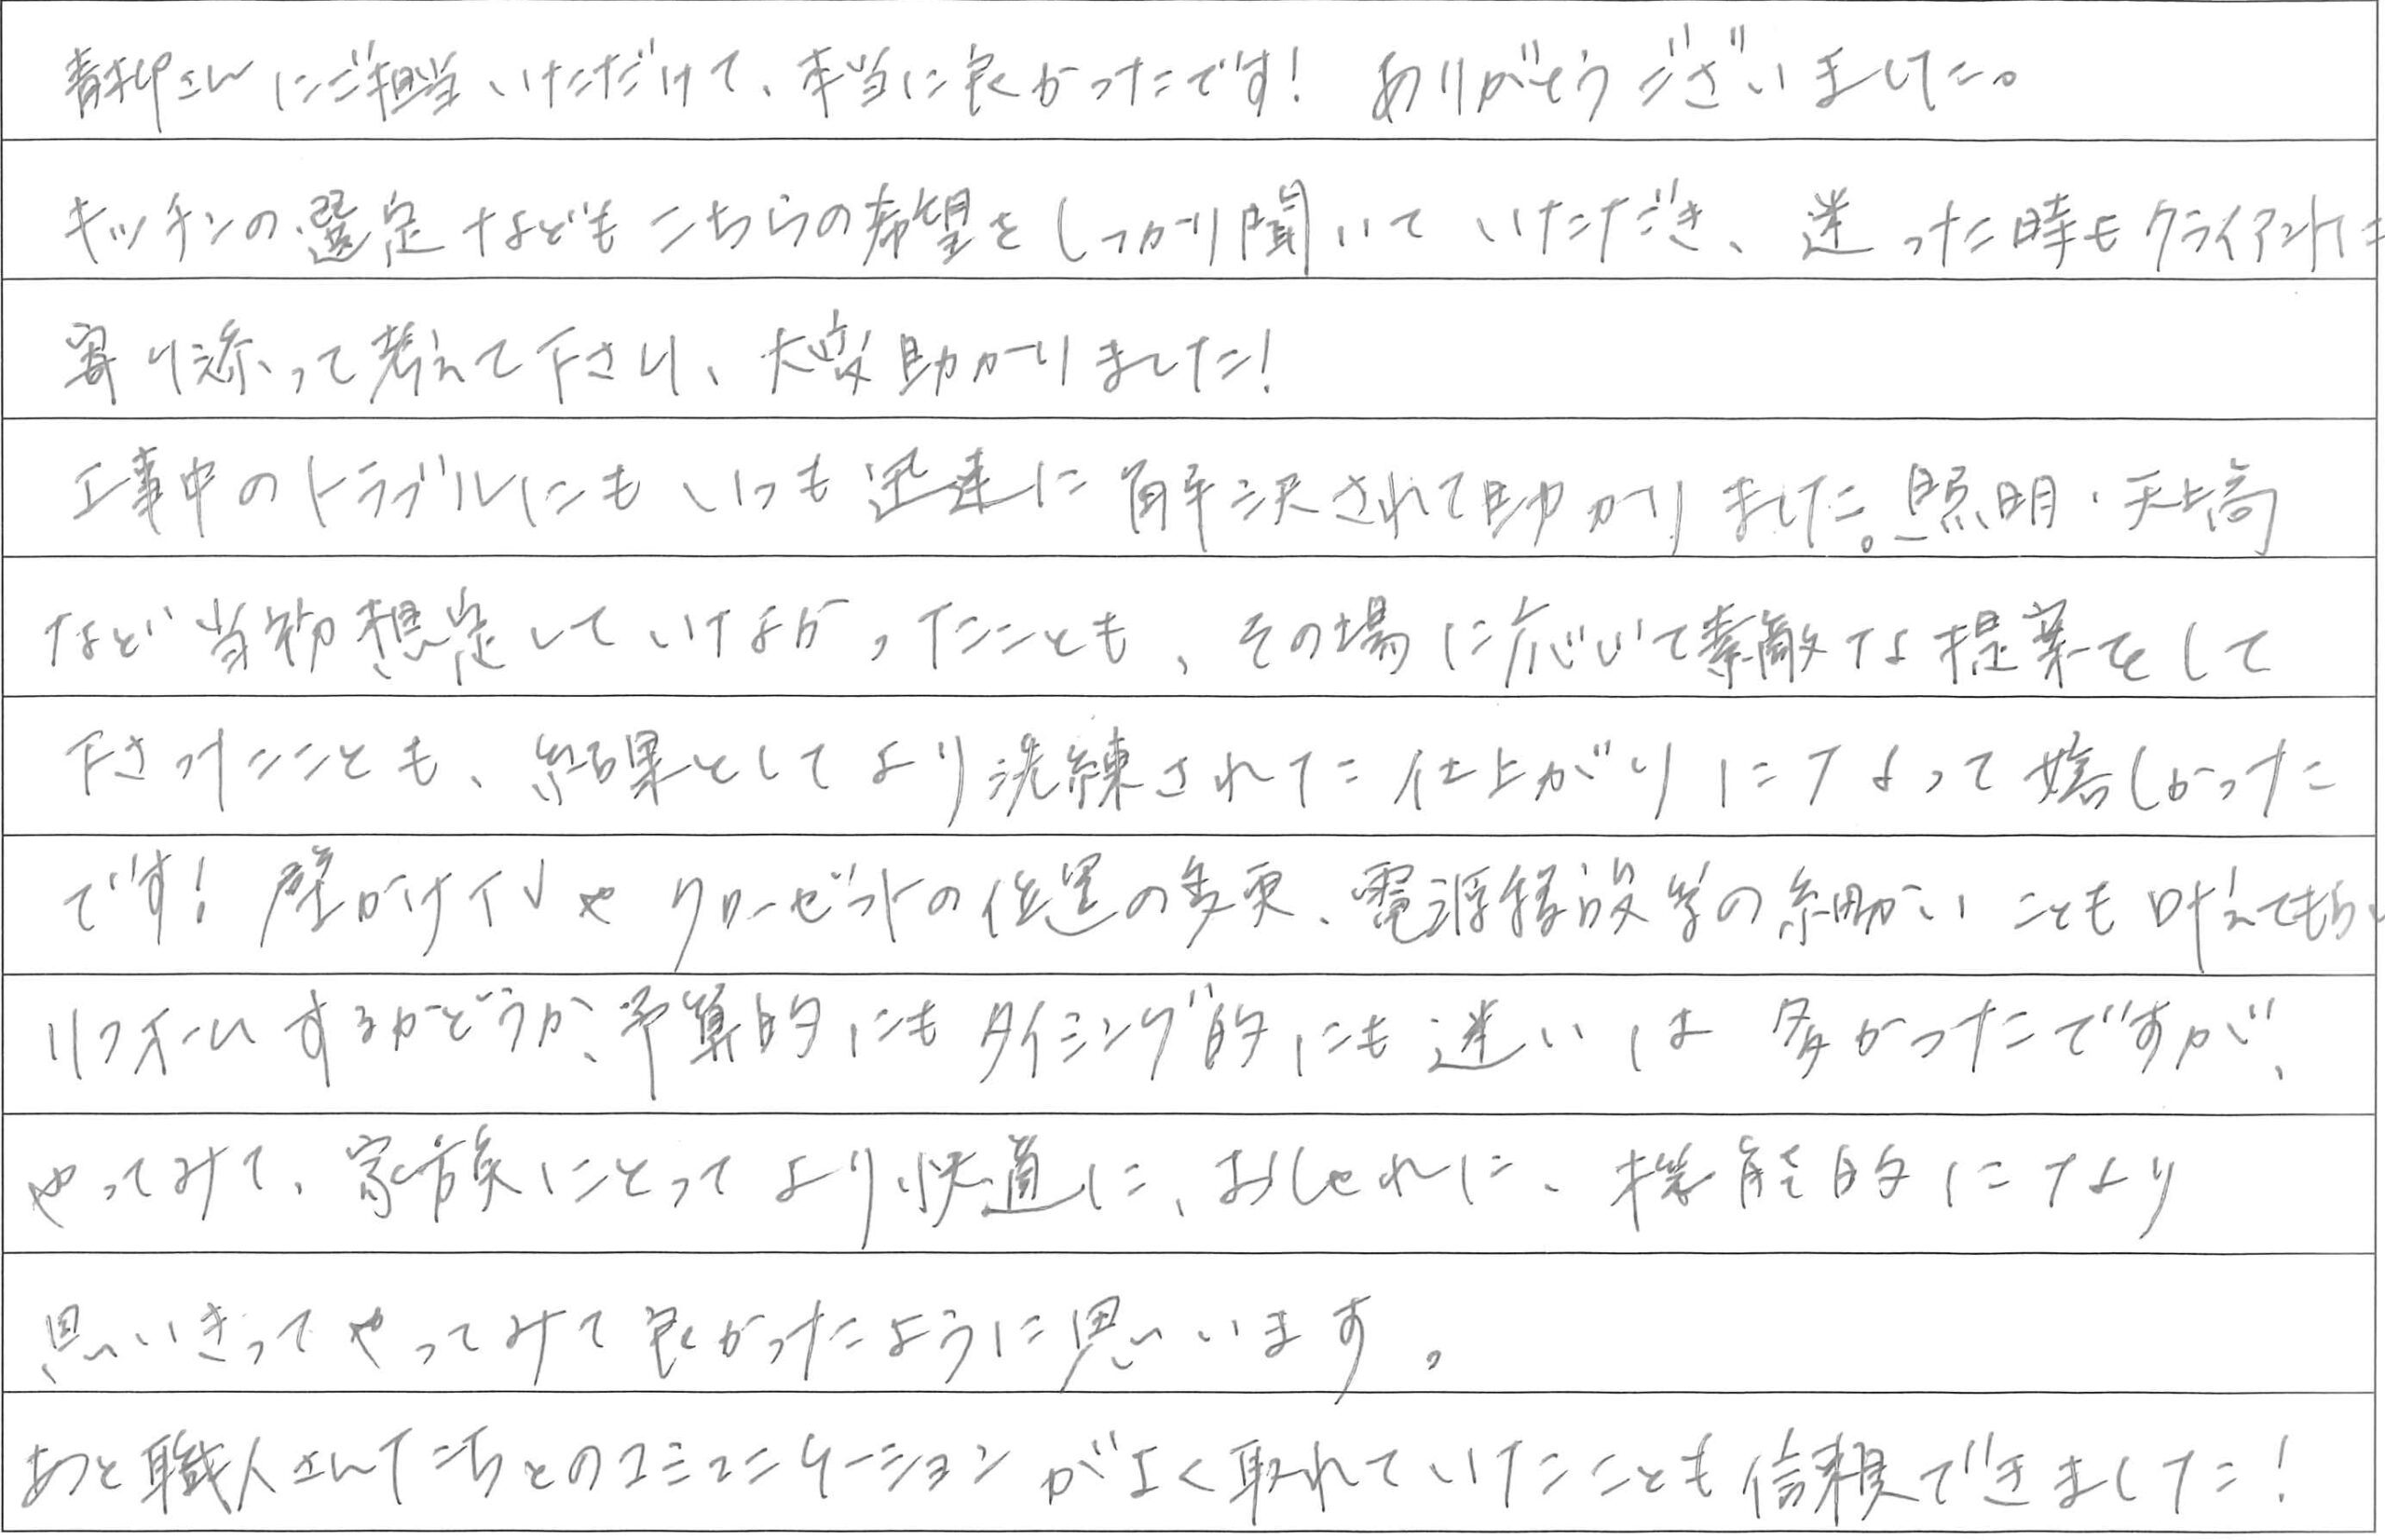 青柳さんにご担当いただけて、本当に良かったです! ありがとうございました。
キッチンの選定などもこちらの希望をしっかり聞いていただき、迷った時もクライアントに
寄り添って考えて下さり、大変助かりました!
工事中のトラブルにもいつも迅速に解決されて助かりました。照明・天井高
など当初想定していなかったことも、その場に応じて素敵な提案をして
下さったことも、結果としてより洗練された仕上がりになって嬉しかった
です! 壁がけTVやクローゼットの位置の変更、電源移設等の細かいことも叶えてもらい
リフォームするかどうか、予算的にもタイミング的にも迷いは多かったですが、
やってみて、家族にとってより快適に、おしゃれに、機能的になり
思いきってやってみて良かったように思います。
あと職人さんたちとのコミュニケーションがよく取れていたことも信頼できました!